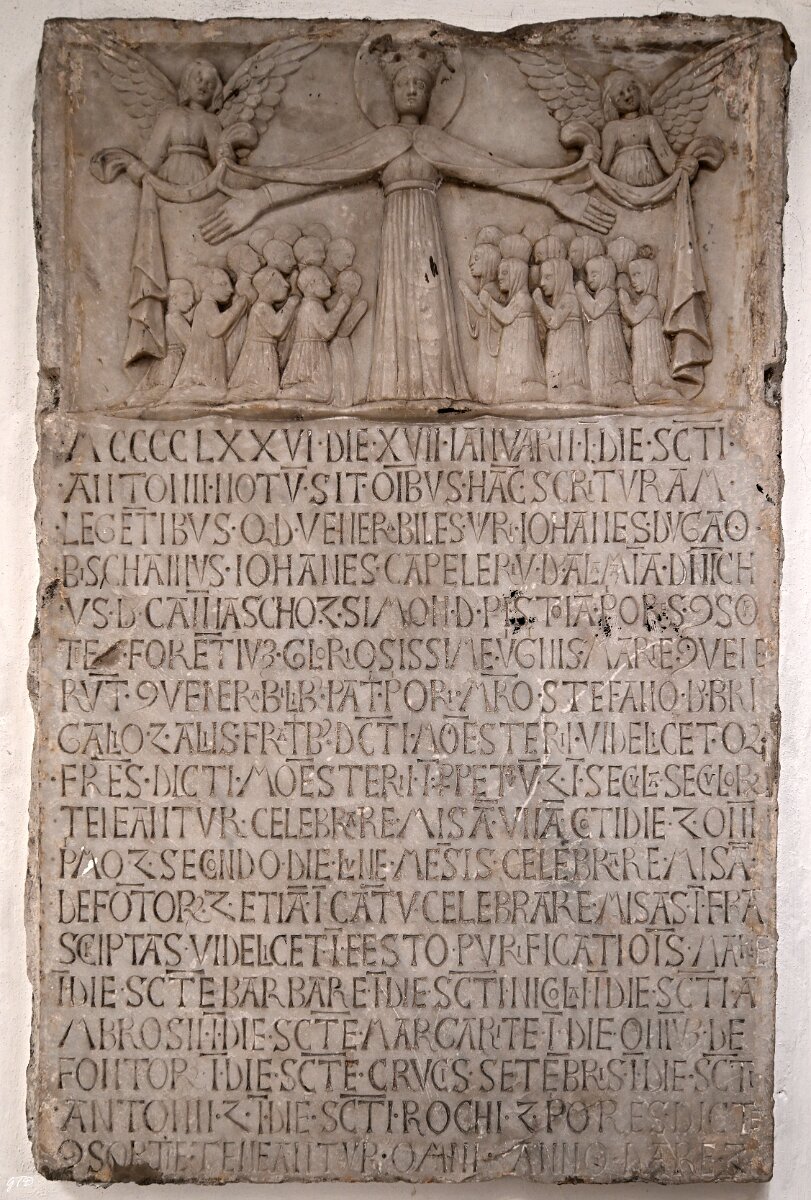 MCCCCLXXVI·DIE·XVII·IANVARII·I·DIE·SCTI·
ANTONII·NOTV·SIT·OIBVS·HAC·SCRITVRAM·
LEGETIBVS·QD·VENERABILES·VRI·IOHANES·DVGAO
B·SCHANVS·IOHANES·CAPELERIV·DALMATIA·DNICH
VS·D·CANHASCHO·Z·SIMON·D·PISTOIA·PORS·9SO
TE·FORETIVB·GLORIOSISSIME·VGINIS·MARIE·9VENE
RVT·9VENERABILB·PATPORI·MRO·STEFANO·D·BRI
GALIO·Z·ALIIS·FRATB·DCTI·MOESTERII·VIDELICET·Q
FRES·DICTI·MOESTERII·I·PPETVZ·I·SECLA·SECLOR
TENEANTVR·CELEBRARE·MISA·VNA·COTIDIE·Z·ONI
PMO·Z·SECONDO·DIE·LVNE·MESIS·CELEBRARE·MISA·
DEFOTOR·Z·ETIA·I·CATV·CELEBRARE·MISAS·I·FRA
SCIPTAS·VIDELICET·I·FESTO·PVRIFICATIOIS·MARIE
I·DIE·SCTE·BARBARE·I·DIE·SCTI·NICOLAI·I·DIE·SCTI·A
MBROSII·I·DIE·SCTE·MARGARITE·I·DIE·ONIVB·DE
FONTOR·I·DIE·SCTE·CRVCIS·SETEBRIS·I·DIE·SCTI
ANTONII·Z·I·DIE·SCTI·ROCHI·Z·PORES·DICTE
9SORTIE·TENEANTVR·OMNI·ANNO·DARE·Z